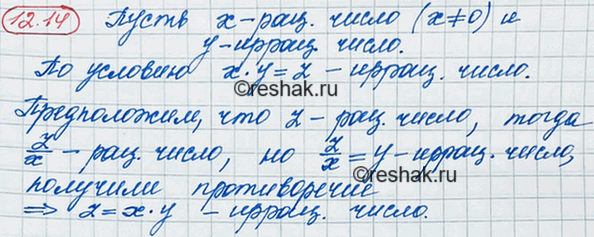 12.14 Пусть x-рац. число (x≠0) и
y-иррац. число.
По условию x·y=z - иррац. число.
©reshak.ru
Предположим, что z - рац. число, тогда
z/x - рац. число, но z/x = y - иррац. число,
©reshak.ru
получили противоречие
⇒ z=x·y - иррац. число.